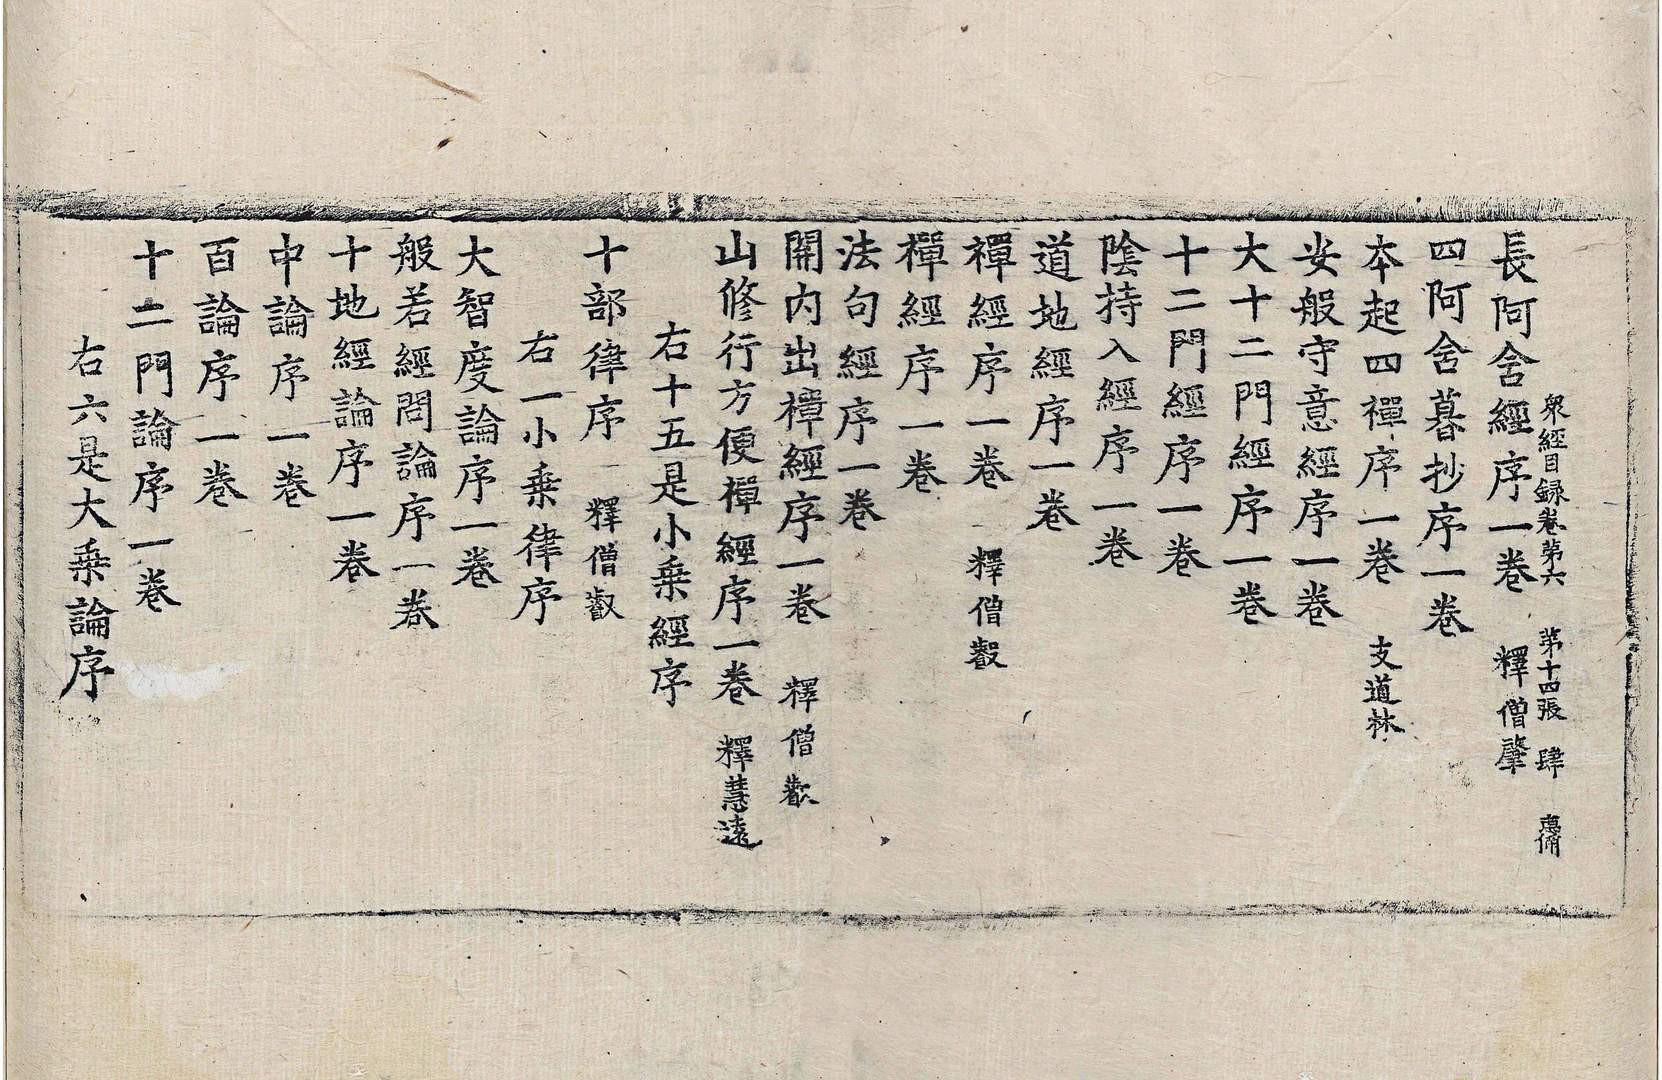 衆經目録卷第六 第十四張 肆
長阿含經序一卷 釋僧肇
四阿含暮抄序一卷
本起四禪序一卷 支道林
安般守意經序一卷
大十二門經序一卷
十二門經序一卷
陰持入經序一卷
道地經序一卷
禪經序一卷 釋僧叡
禪經序一卷
法句經序一卷
關内出禪經序一卷 釋僧叡
山修行方便禪經序一卷 釋慧遠
右十五是小乗經序
十部律序 釋僧叡
右一小乗律序
大智度論序一卷
般若經問論序一卷
十地經論序一卷
中論序一卷
百論序一卷
十二門論序一卷
右六是大乗論序